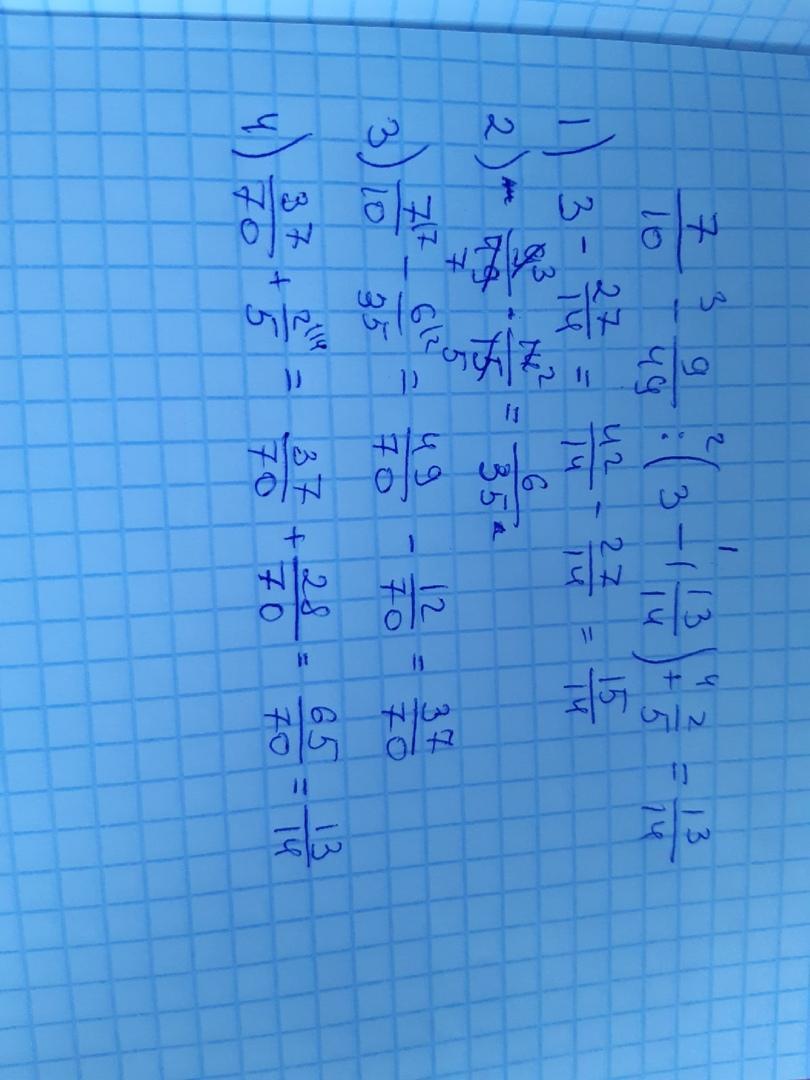 7/10 - 9/49 : (3 - 1 13/14) + 2/5 = 13/14
1) 3 - 27/14 = 42/14 - 27/14 = 15/14
2) 9/49 · 14/15 = 6/35
3) 7/10 - 6/35 = 49/70 - 12/70 = 37/70
4) 37/70 + 2/5 = 37/70 + 28/70 = 65/70 = 13/14